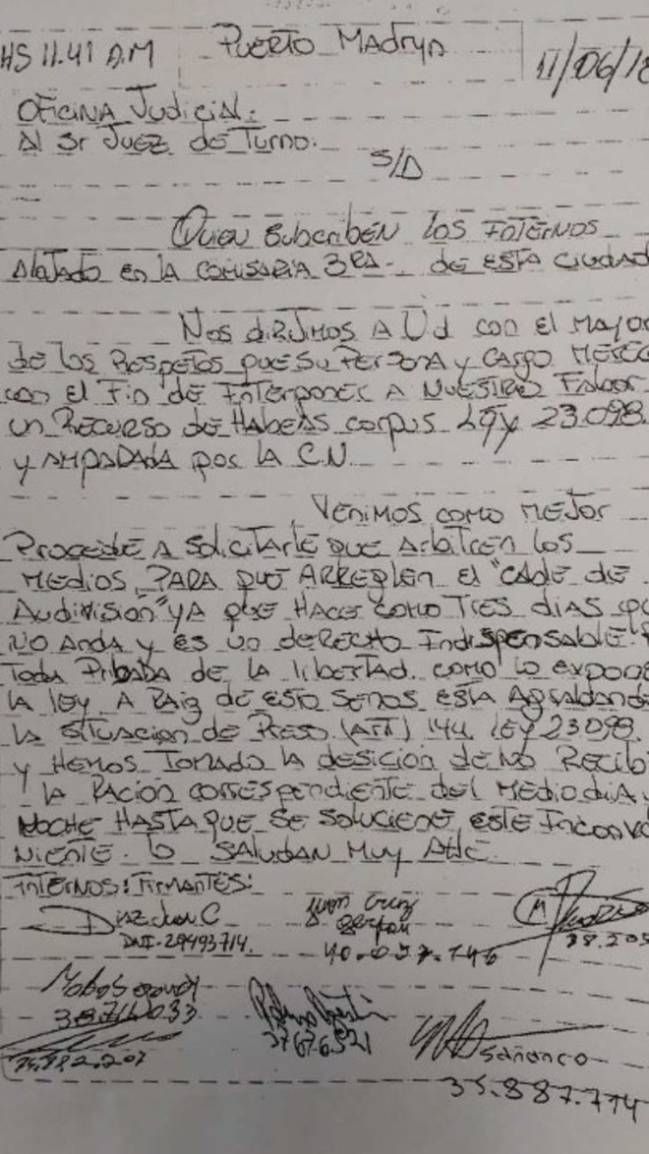 HS 11.41 A.M PUERTO MADRYN 11/06/18
OFICINA JUDICIAL:
Al Sr JUEZ de TURNO.
S/D
QUIEN SUBSCRIBEN LOS INTERNOS
AlOJADO EN LA COMISARIA 3RA- DE ESTA CIUDAD
NOS DIRIJIMOS A Ud CON El MAYOR
DE LOS RESPETOS QUE SU PERSONA Y CARGO MEREC
CON El FIN DE INTERPONER A NUESTRO FABOR
UN RECURSO DE HABEAS CORPUS LEY 23.098.
Y AMPARADA POR LA C.N.
VENIMOS COMO MEJOR
PROCEDE A SOLICITARLE QUE ARBITREN LOS
MEDIOS, PARA QUE ARREGLEN El "CABLE DE
AUDIVISION" YA QUE HACE COMO TRES DIAS QU
NO ANDA Y ES UN DERECHO INDISPENSABLE.
TODA PRIBABA DE LA LIBERTAD. COMO LO EXPONE
LA LEY A RAIZ DE ESTO SENOS ESTA AGRABANDO
LA SITUACION DE PRESO. (ART) 144 LEY 23098.
Y HEMOS TOMADO LA DESICION DE NO RECIB
LA RACION CORRESPONDIENTE DEL MEDIO DIA.
NOCHE HASTA QUE SE SOLUCIONE ESTE INCONVE
NIENTE. LO SALUDAN MUY ATTE.
INTERNOS: FIRMANTES:
DIAZ JUAN C JUAN CRUZ
DNI-29493714. 40.057.746 38.205
37676521
35.982.207 SAÑANCO
35.887.774